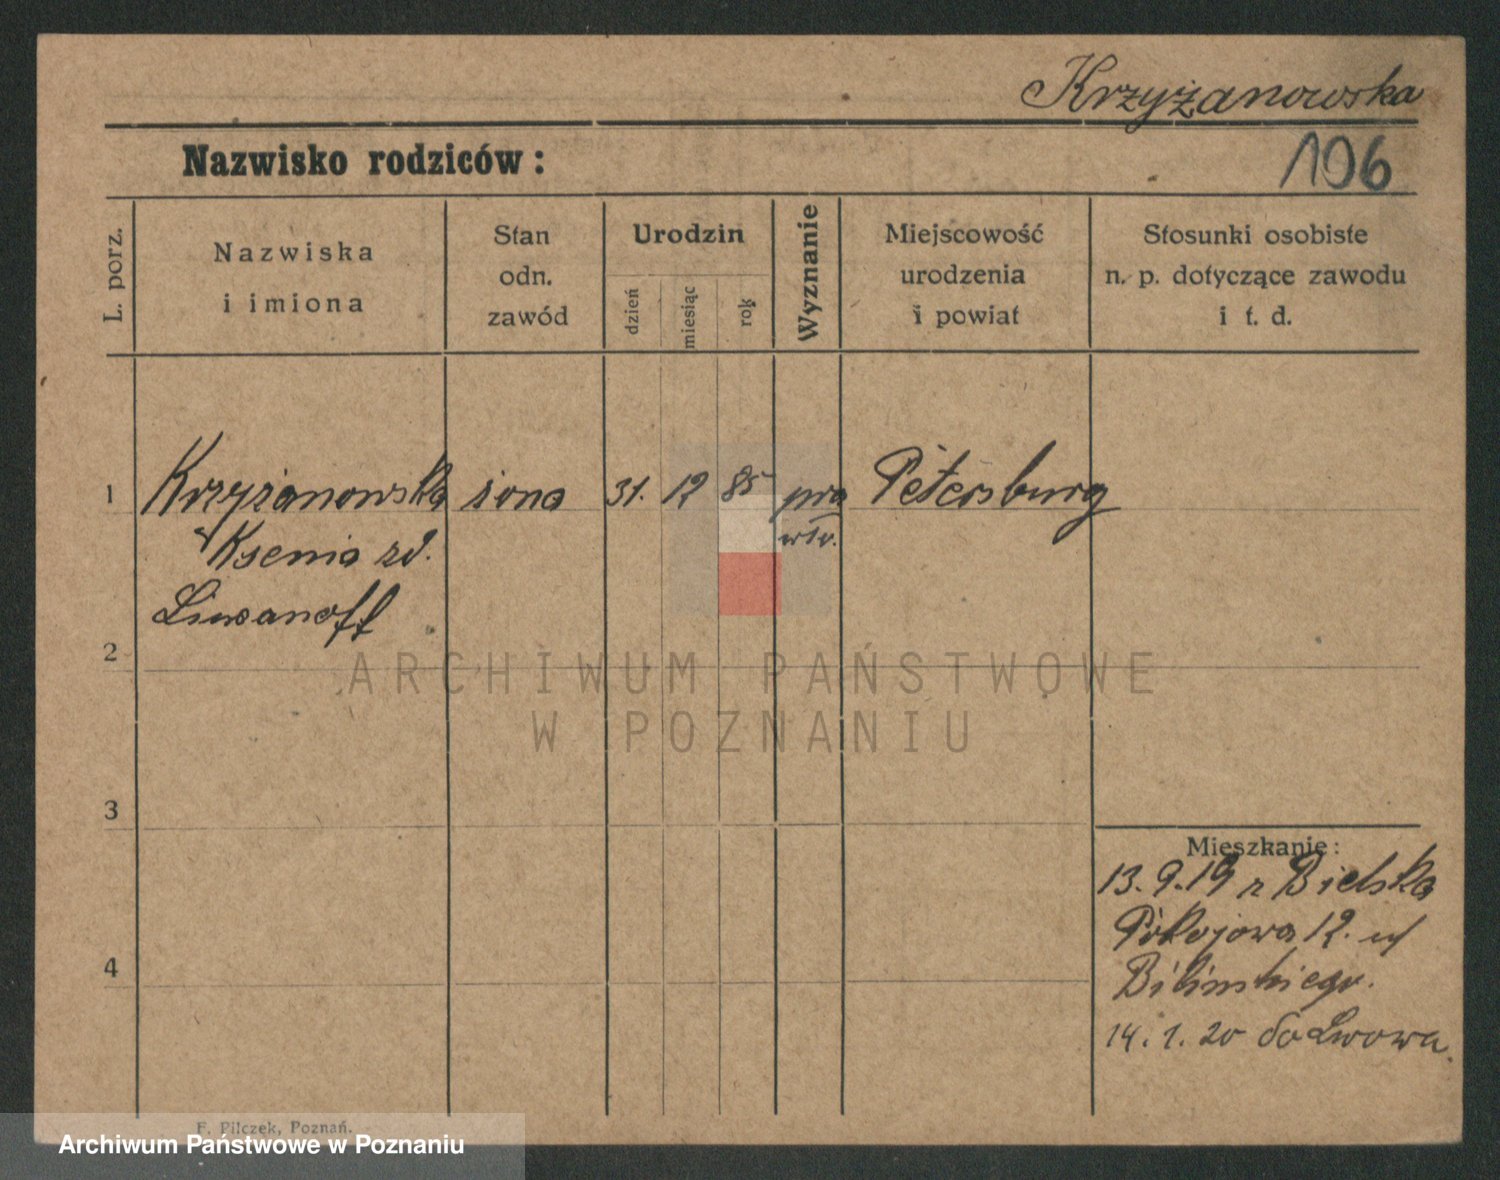 Krzyżanowska
Nazwisko rodziców:
106
L. porz.
Nazwiska
i imiona
Stan
odn.
zawód
Urodzin
dzień
miesiąc
rok
Wyznanie
Miejscowość
urodzenia
i powiat
Stosunki osobiste
n. p. dotyczące zawodu
i t. d.
1 Krzyżanowska żona 31. 12 85 pra Petersburg
wsł.
Ksenia zd.
2
ARCHIWUM PAŃSTWOWE
W POZNANIU
3
Mieszkanie:
13.9.19 z Bielska
4
Pokojowa 12. u
Bilińskiego.
14.1.20 do Lwowa.
F. Pilczek, Poznań.
Archiwum Państwowe w Poznaniu